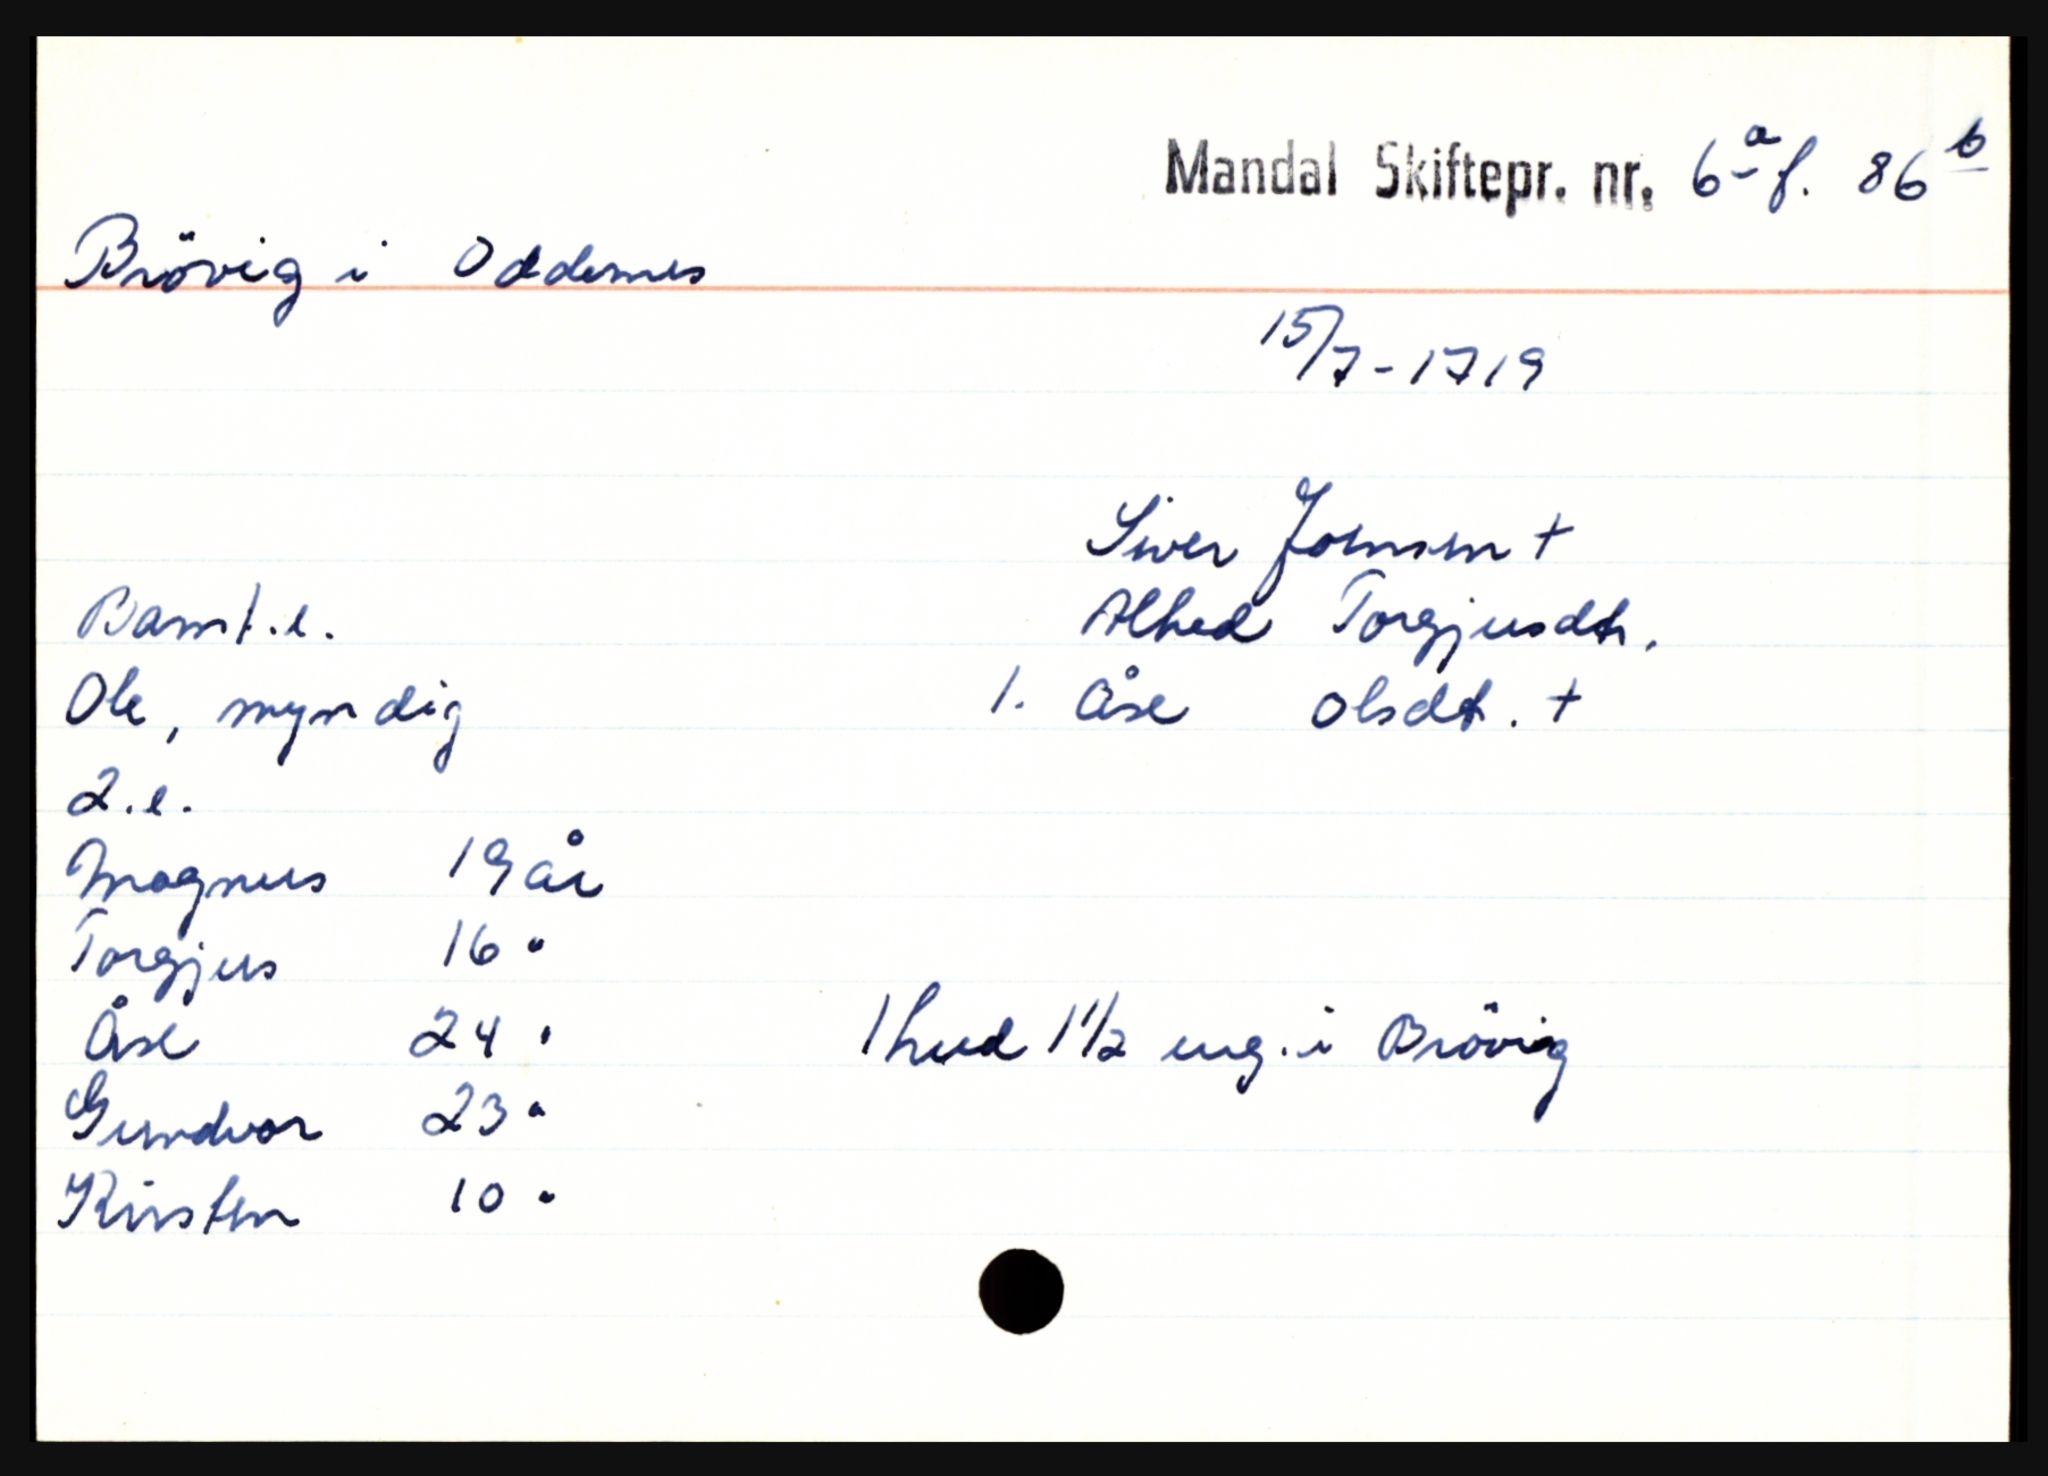 Mandal Skiftepr. nr. 6a f. 86b
Brövig i Oddernes
15/7-1719
Siver Joensen +
Barn 1.e. Alhed Torgjusdtr.
Ole, myndig 1. Åse Olsdt. +
2.e.
Magnus 19 år
Torgjus 16 "
Åse 24 " 1 hud 1 1/2 eng. i Brövig
Gundvor 23 "
Kirsten 10 "